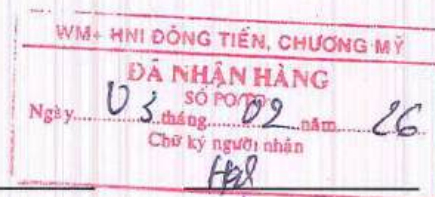 WM+ HNI ĐỒNG TIẾN, CHƯƠNG MỸ
ĐÃ NHẬN HÀNG
SỐ PO/TO:
Ngày 03 tháng 02 năm 26
Chữ ký người nhận